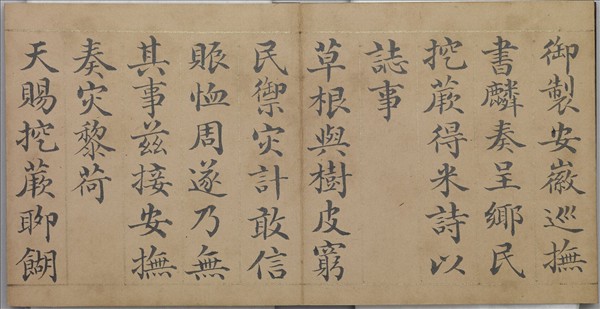 御製安徽巡撫
書麟奏呈鄉民
挖蕨得米詩以
誌事
草根與樹皮窮
民禦灾計敢信
賑恤周遂乃無
其事兹接安撫
奏灾黎荷
天賜挖蕨聊餬